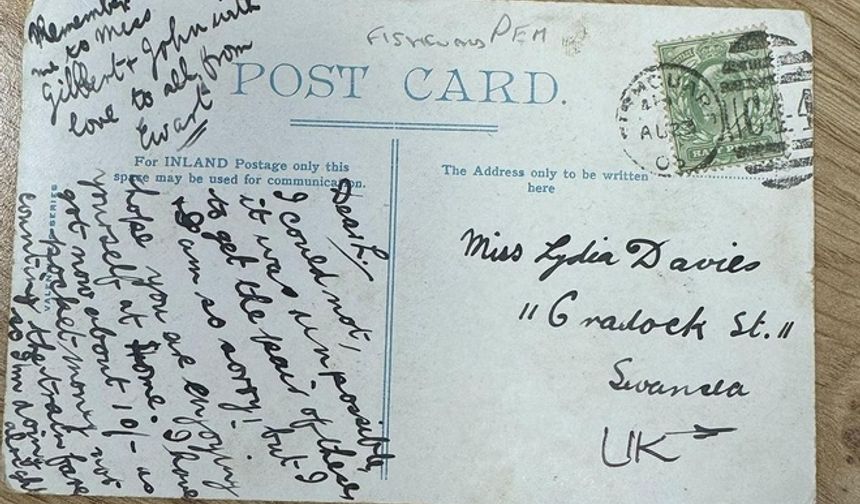 Remember
me to Miss
Gilbert & John with
love to all from
Ewart
FISHGUARD PEM
POST CARD.
For INLAND Postage only this
space may be used for communication.
The Address only to be written
here
AU 23
Dear L.
I could not,
it was impossible
to get the pair of these
I am so sorry! but I
hope you are enjoying
yourself at home. I have
got now about 10/- as
pocket-money not
counting the train fare
so I'm doing
alright
SERIES
Miss Lydia Davies
"Cradock St."
Swansea
UK